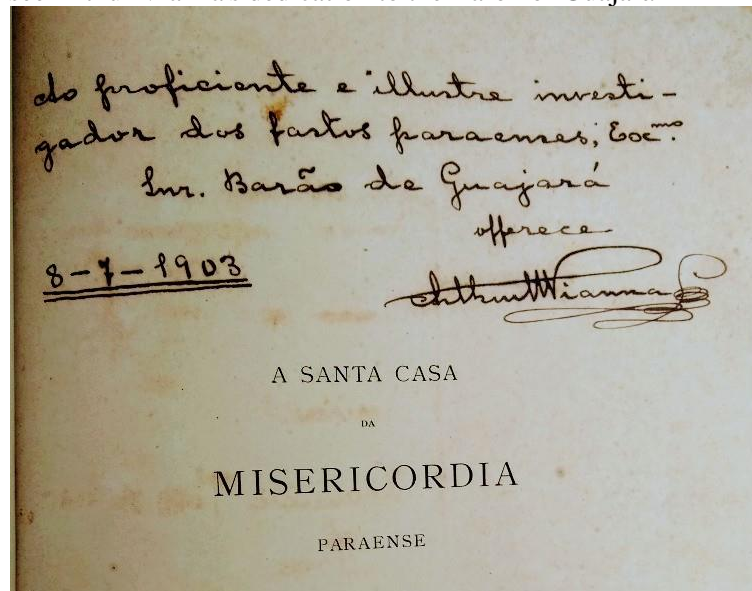 Ao proficiente e illustre investi-
gador dos fastos paraenses, Exc.mo
Snr. Barão de Guajará
offerece
8-7-1903
Arthur Vianna
A SANTA CASA
DA
MISERICORDIA
PARAENSE